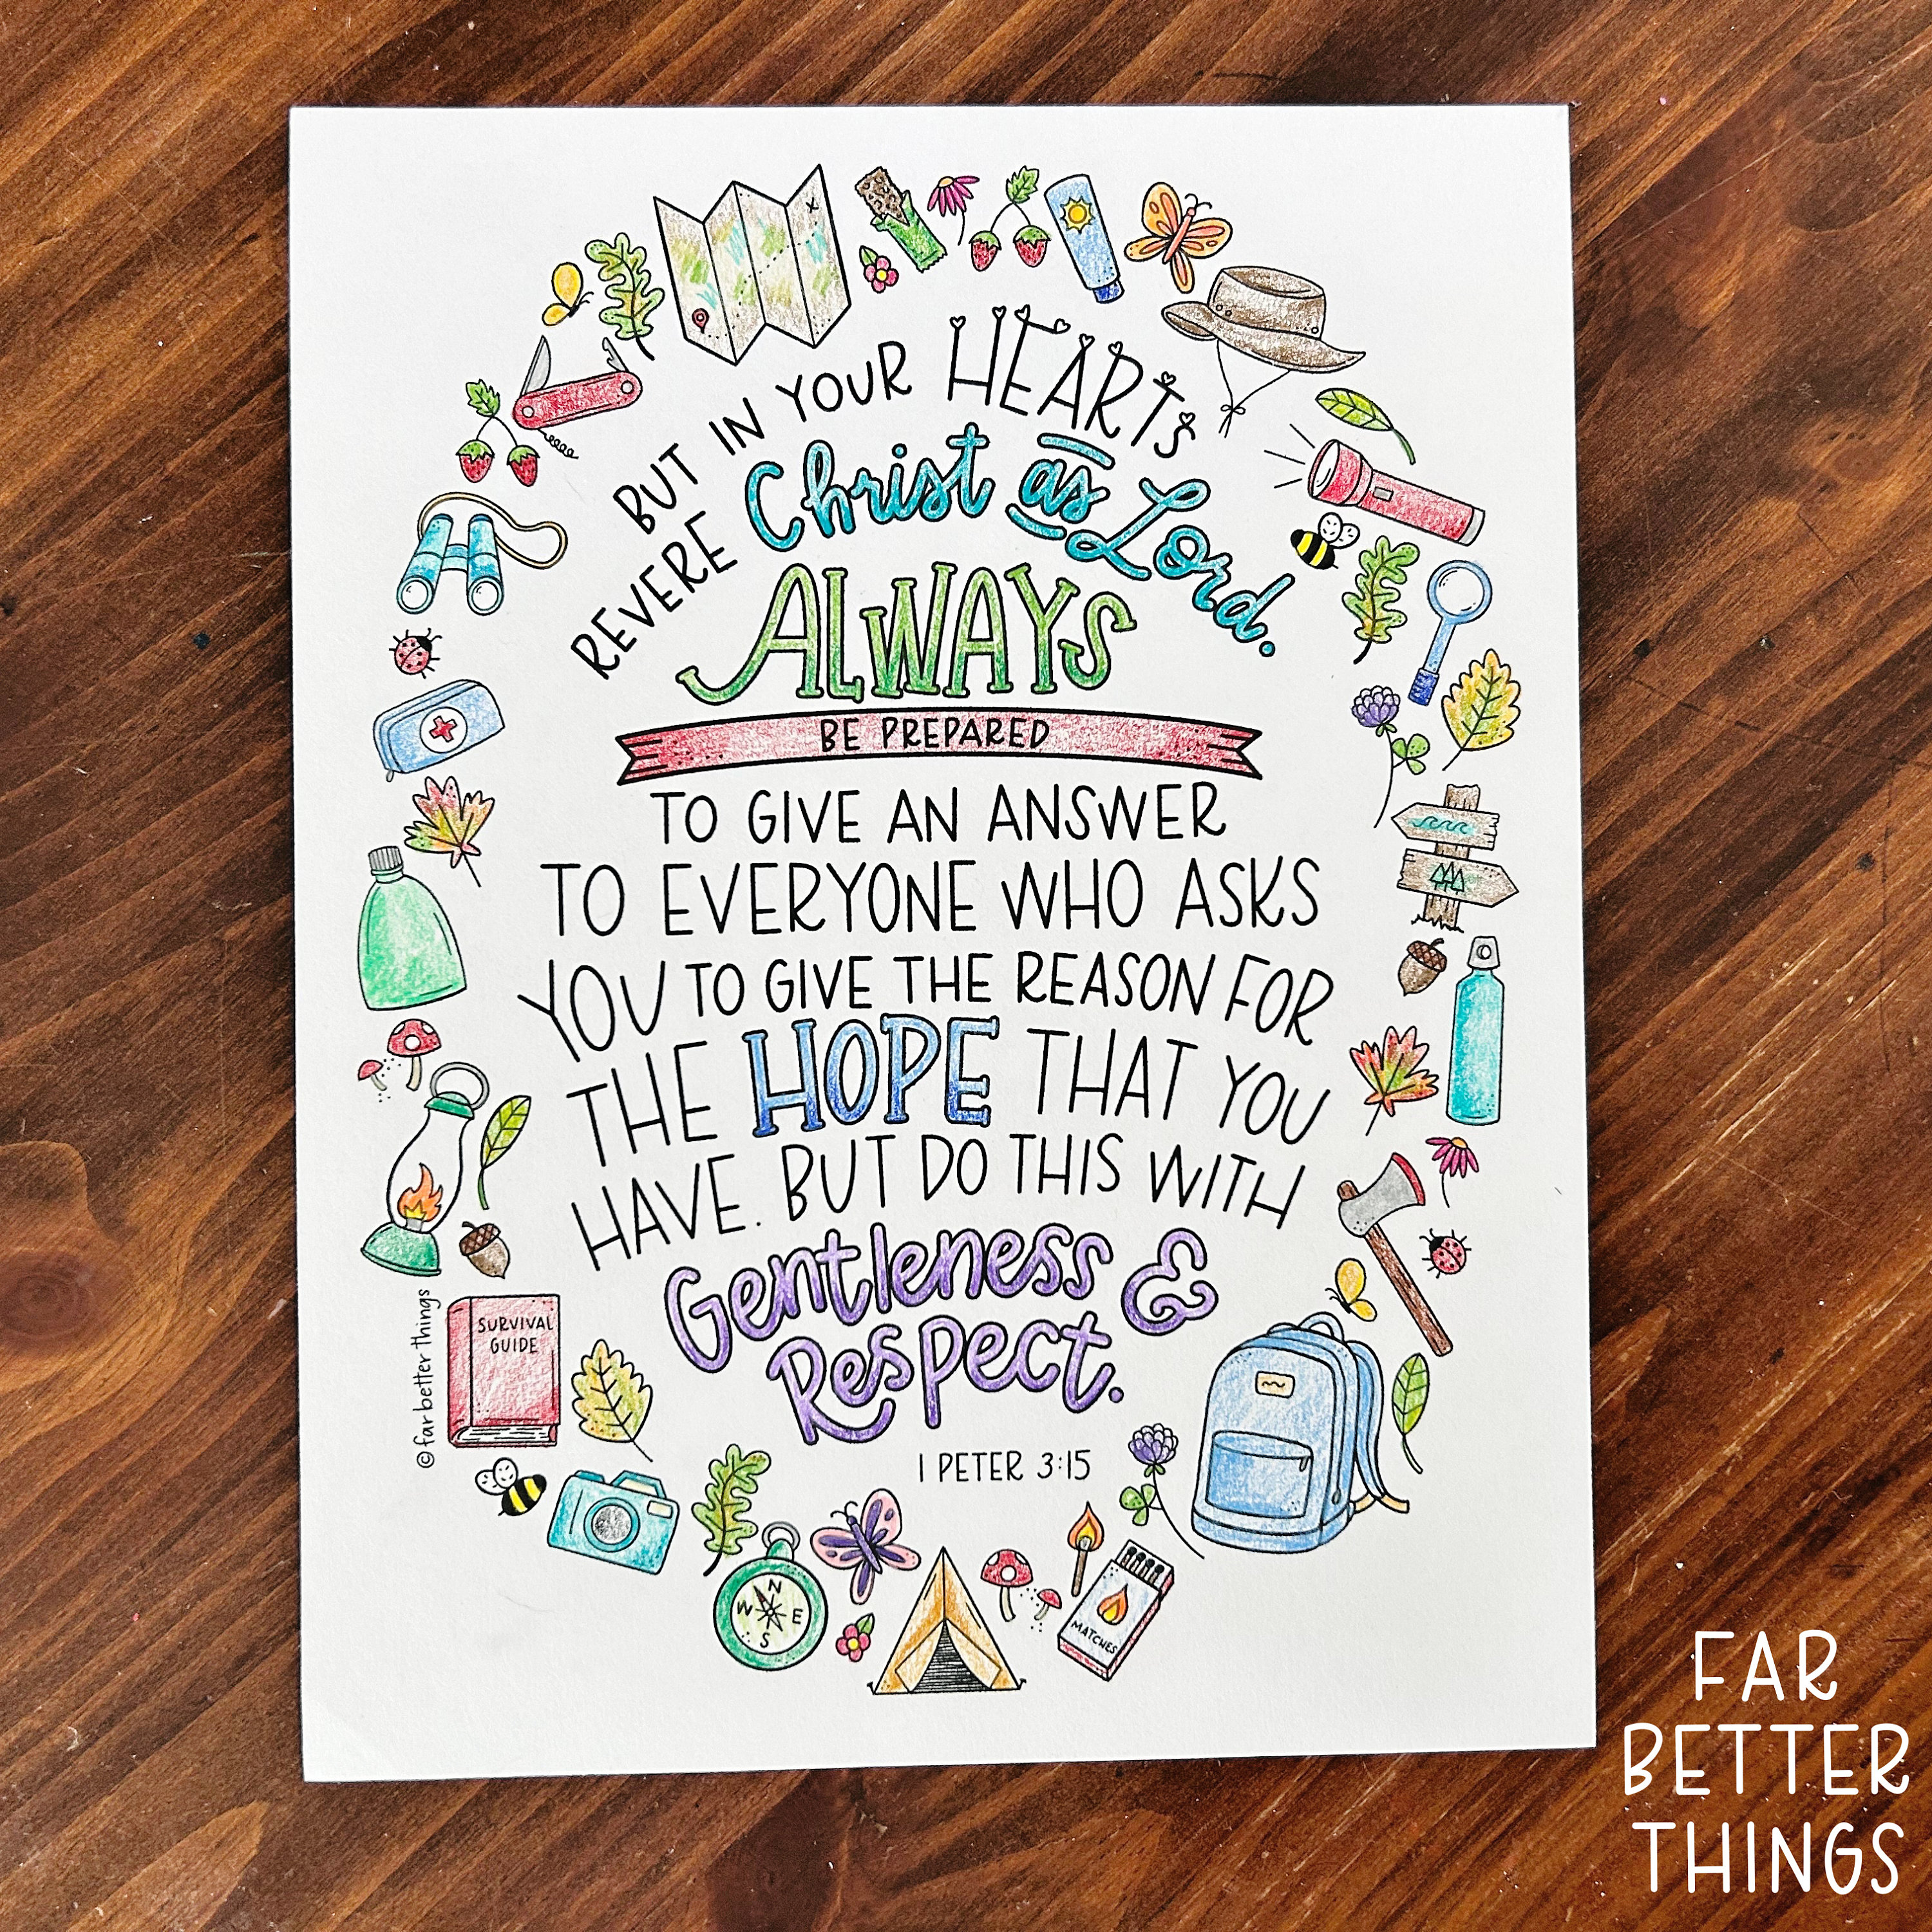 BUT IN YOUR HEARTS
REVERE Christ as Lord.
ALWAYS
BE PREPARED
TO GIVE AN ANSWER
TO EVERYONE WHO ASKS
YOU TO GIVE THE REASON FOR
THE HOPE THAT YOU
HAVE. BUT DO THIS WITH
Gentleness &
Respect.
1 PETER 3:15
SURVIVAL
GUIDE
©far better things
N
W E
S
MATCHES
X
FAR
BETTER
THINGS